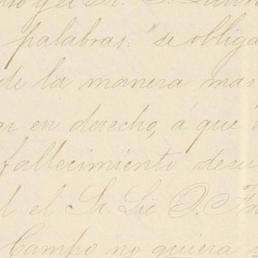 palabras: "se obliga
de la manera mas
en derecho, á que
fallecimiento de su
el Sr. Lic. D.
Campo no quiera